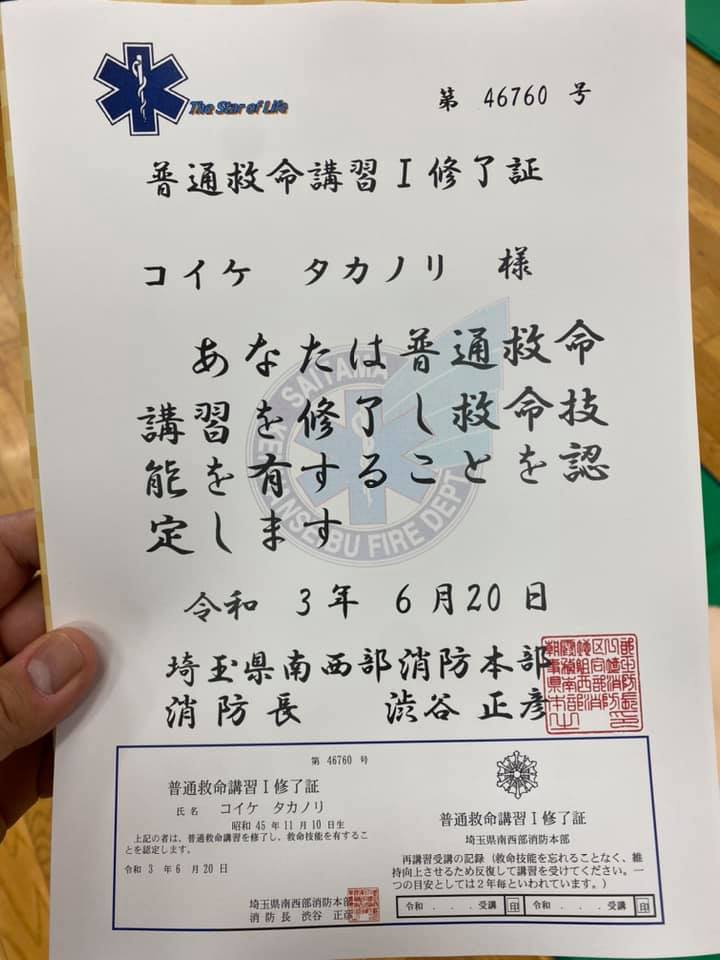 The Star of Life
第 46760 号
普通救命講習Ⅰ修了証
コイケ タカノリ 様
あなたは普通救命
講習を修了し救命技
能を有することを認
定します
SAITAMA
FIRE DEPT
令和 3年 6月20日
埼玉県南西部消防本部
消防長 渋谷 正彦
第 46760 号
普通救命講習Ⅰ修了証
氏名 コイケ タカノリ
昭和 45年11月10日生
上記の者は、普通救命講習を修了し、救命技能を有するこ
とを認定します。
令和 3 年 6月20日
埼玉県南西部消防本部
消防長 渋谷 正彦
普通救命講習Ⅰ修了証
埼玉県南西部消防本部
再講習受講の記録(救命技能を忘れることなく、維
持向上させるため反復して講習を受けてください。一
つの目安としては2年毎といわれています。)
令和 . . . 受講 印 令和 . . . 受講 印